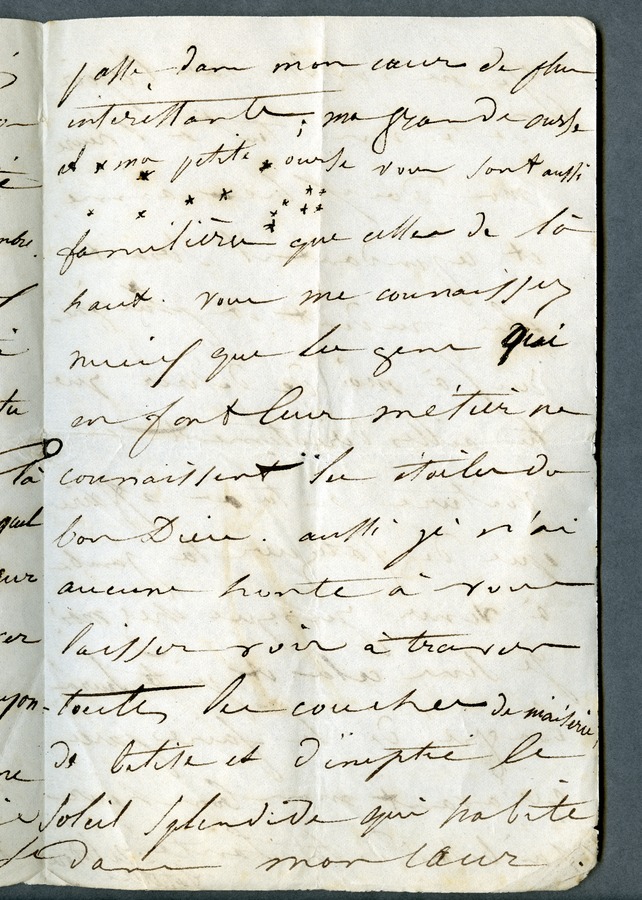 passé dans mon cœur de plus
intéressante, ma grande ourse
et ma petite ourse vous sont aussi
familières que celles de là
haut. vous me connaissez
mieux que les gens qui
en font leur métier ne
connaissent les étoiles du
bon Dieu. aussi je n'ai
aucune honte à vous
laisser voir à travers
toutes les couches de niaiserie,
de bêtise et d'ineptie le
soleil splendide qui habite
dans mon cœur.